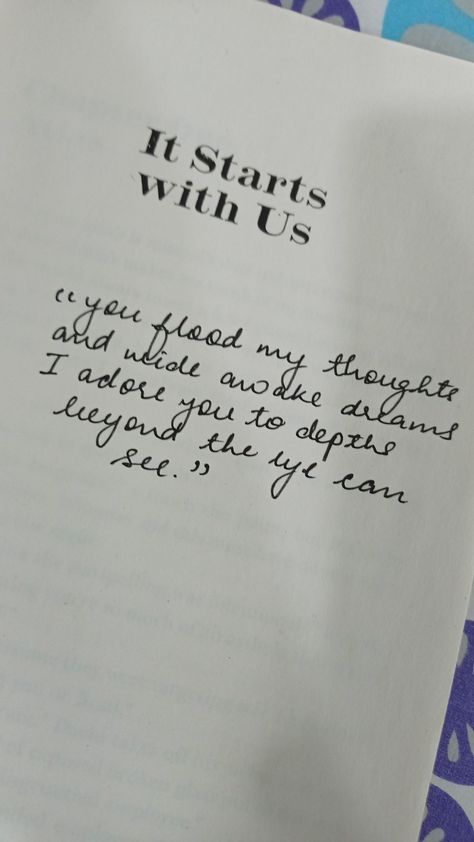 It Starts
with Us
“you flood my thoughts
and wide awake dreams
I adore you to depths
beyond the eye can
see.”